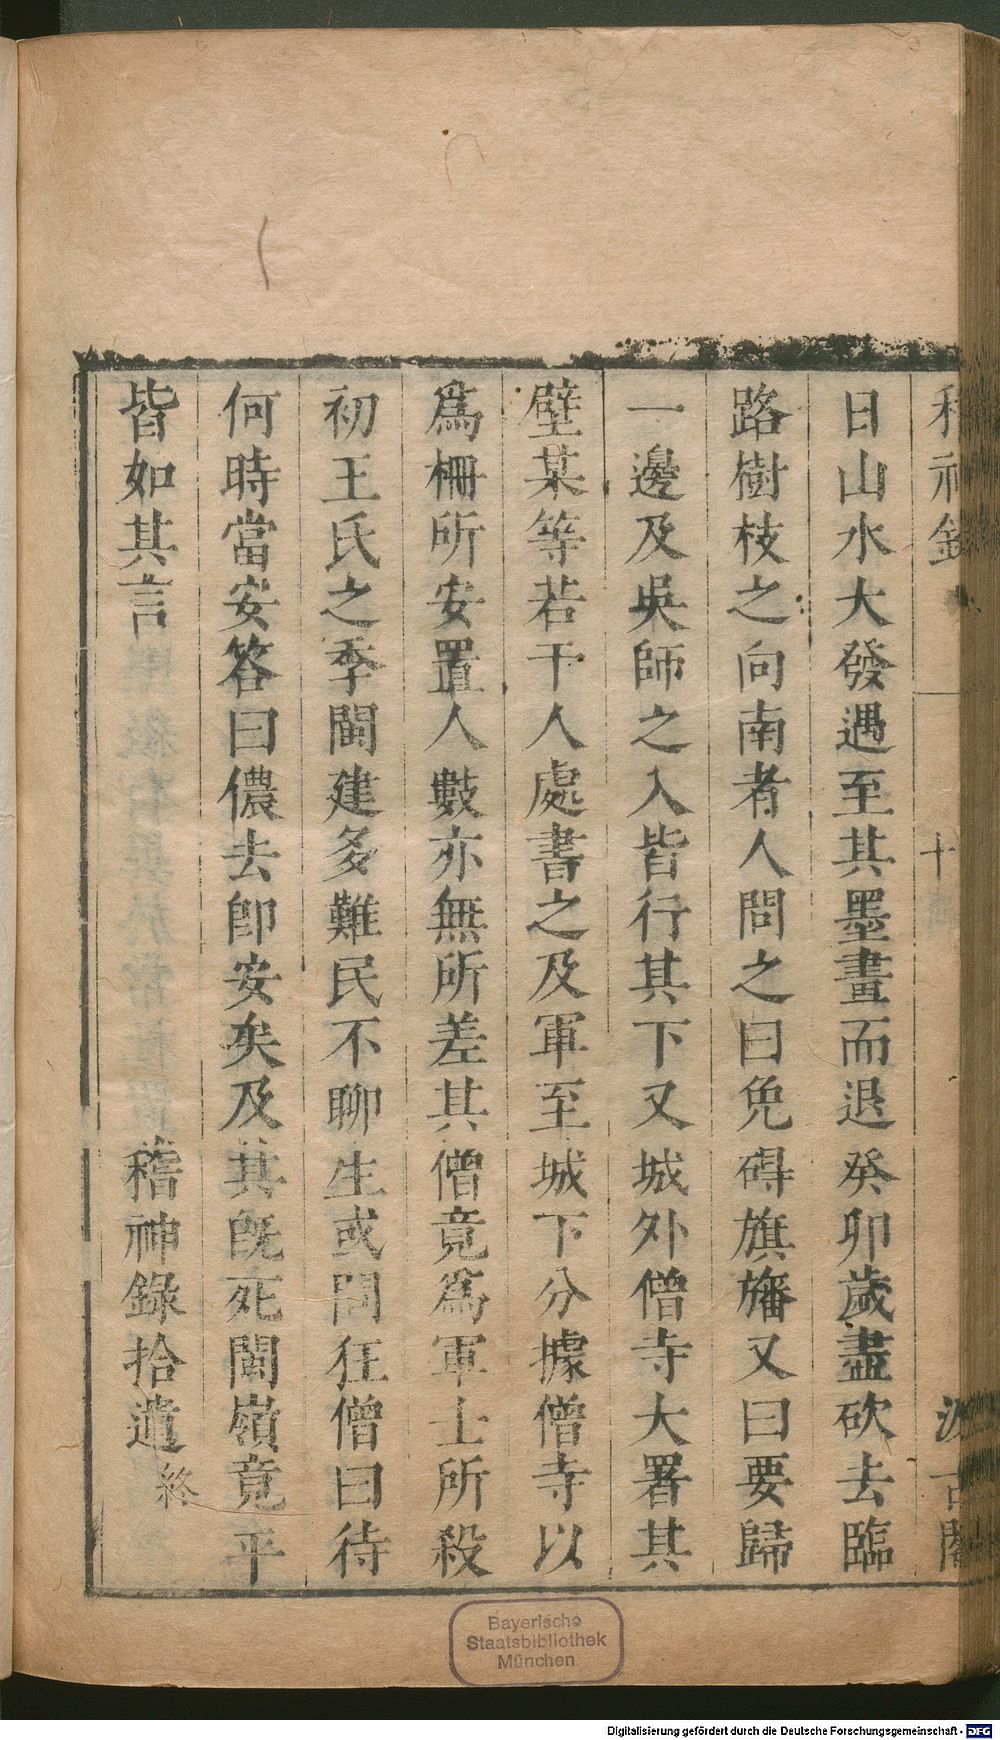 稽神錄
十
汲古閣
日山水大發遇至其墨畫而退癸卯歲盡砍去臨
路樹枝之向南者人問之曰免礙旗旛又曰要歸
一邊及吳師之入皆行其下又城外僧寺大署其
壁某等若干人處書之及軍至城下分據僧寺以
爲柵所安置人數亦無所差其僧竟爲軍士所殺
初王氏之季閩建多難民不聊生或問狂僧曰待
何時當安答曰儂去卽安矣及其旣死閩嶺竟平
皆如其言
稽神錄拾遺終
Bayerische
Staatsbibliothek
München
Digitalisierung gefördert durch die Deutsche Forschungsgemeinschaft - DFG